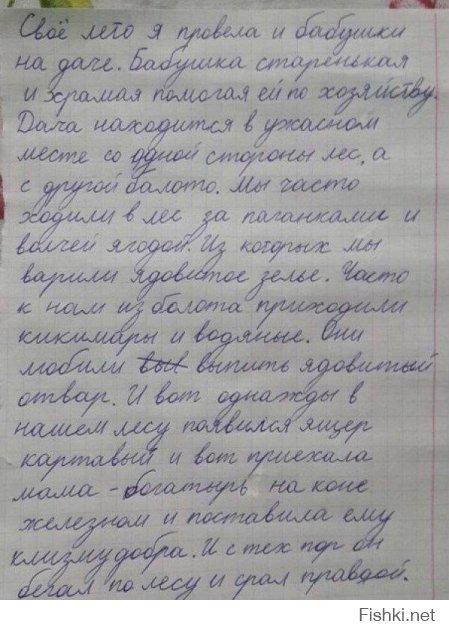 Своё лето я провела и бабушки
на даче. Бабушка старенькая
и храмая помогая ей по хозяйству.
Дача находится в ужасном
месте со одной стороны лес, а
с другой балото. Мы часто
ходили в лес за паганками и
волчей ягодой. Из которых мы
варили ядовитое зелье. Часто
к нам из болота приходили
кикимары и водяные. Они
любили выпить ядовитый
отвар. И вот однажды в
нашем лесу появился ящер
картавый и вот приехала
мама - богатырь на коне
железном и поставила ему
клизму добра. И с тех пор он
бегал по лесу и срал правдой.
Fishki.net